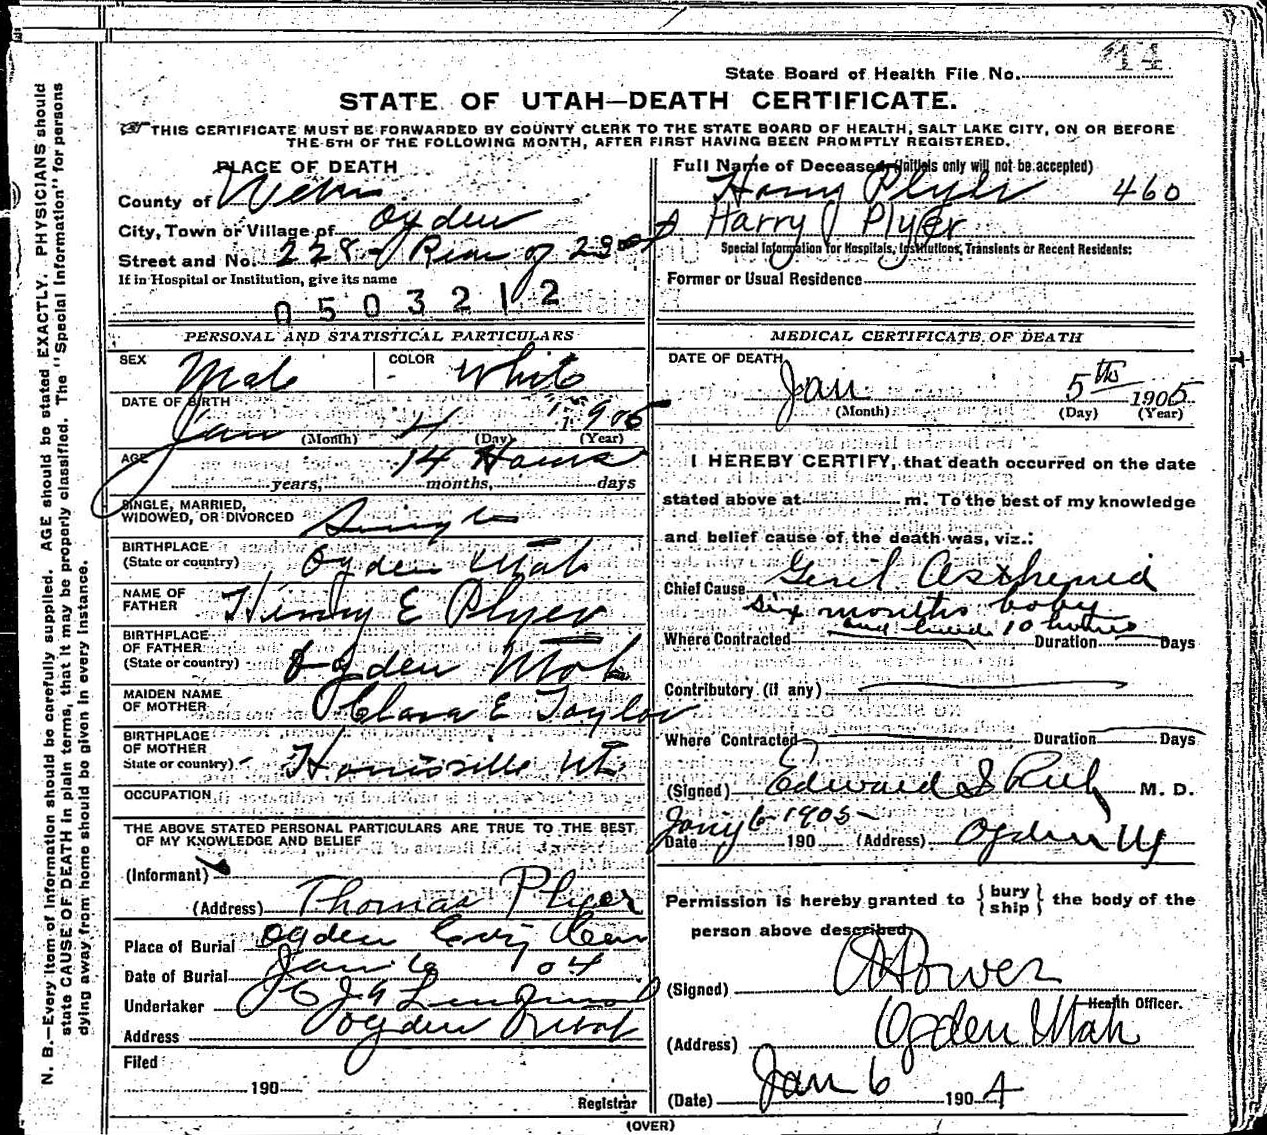 44
State Board of Health File No.
STATE OF UTAH—DEATH CERTIFICATE.
THIS CERTIFICATE MUST BE FORWARDED BY COUNTY CLERK TO THE STATE BOARD OF HEALTH, SALT LAKE CITY, ON OR BEFORE
THE 5TH OF THE FOLLOWING MONTH, AFTER FIRST HAVING BEEN PROMPTLY REGISTERED.
N. B.—Every item of information should be carefully supplied. AGE should be stated EXACTLY. PHYSICIANS should
state CAUSE OF DEATH in plain terms, that it may be properly classified. The "Special Information" for persons
dying away from home should be given in every instance.
PLACE OF DEATH
County of Weber
City, Town or Village of Ogden
Street and No. 228- Rear of 23
If in Hospital or Institution, give its name
0503212
PERSONAL AND STATISTICAL PARTICULARS
SEX Male COLOR White
DATE OF BIRTH
Jan (Month) 4 (Day) 1905 (Year)
AGE 14 Hours
years, months, days
SINGLE, MARRIED,
WIDOWED, OR DIVORCED Single
BIRTHPLACE
(State or country) Ogden Utah
NAME OF
FATHER Henry E Plyer
BIRTHPLACE
OF FATHER
(State or country) Ogden Utah
MAIDEN NAME
OF MOTHER Clara E Taylor
BIRTHPLACE
OF MOTHER
State or country) Harrisville Ut.
OCCUPATION
THE ABOVE STATED PERSONAL PARTICULARS ARE TRUE TO THE BEST
OF MY KNOWLEDGE AND BELIEF
(Informant)
(Address) Thomas Plyer
Place of Burial Ogden City Cem
Date of Burial Jan 6 1904
Undertaker
Address Ogden Utah
Filed
190
Registrar
Full Name of Deceased (Initials only will not be accepted)
Harry Plyer 460
Harry Plyer
Special Information for Hospitals, Institutions, Transients or Recent Residents:
Former or Usual Residence
MEDICAL CERTIFICATE OF DEATH
DATE OF DEATH
Jan 5th 1905
(Month) (Day) (Year)
I HEREBY CERTIFY, that death occurred on the date
stated above at m. To the best of my knowledge
and belief cause of the death was, viz.:
Chief Cause Genl Asthenia
six months baby
and lived 10 hours
Where Contracted Duration Days
Contributory (if any)
Where Contracted Duration Days
(Signed) Edward I Rich M. D.
Jany 6 1905
Date 190 (Address) Ogden Ut
Permission is hereby granted to { bury ship } the body of the
person above described.
(Signed)
Health Officer.
(Address) Ogden Utah
(Date) Jan 6 1904
(OVER)